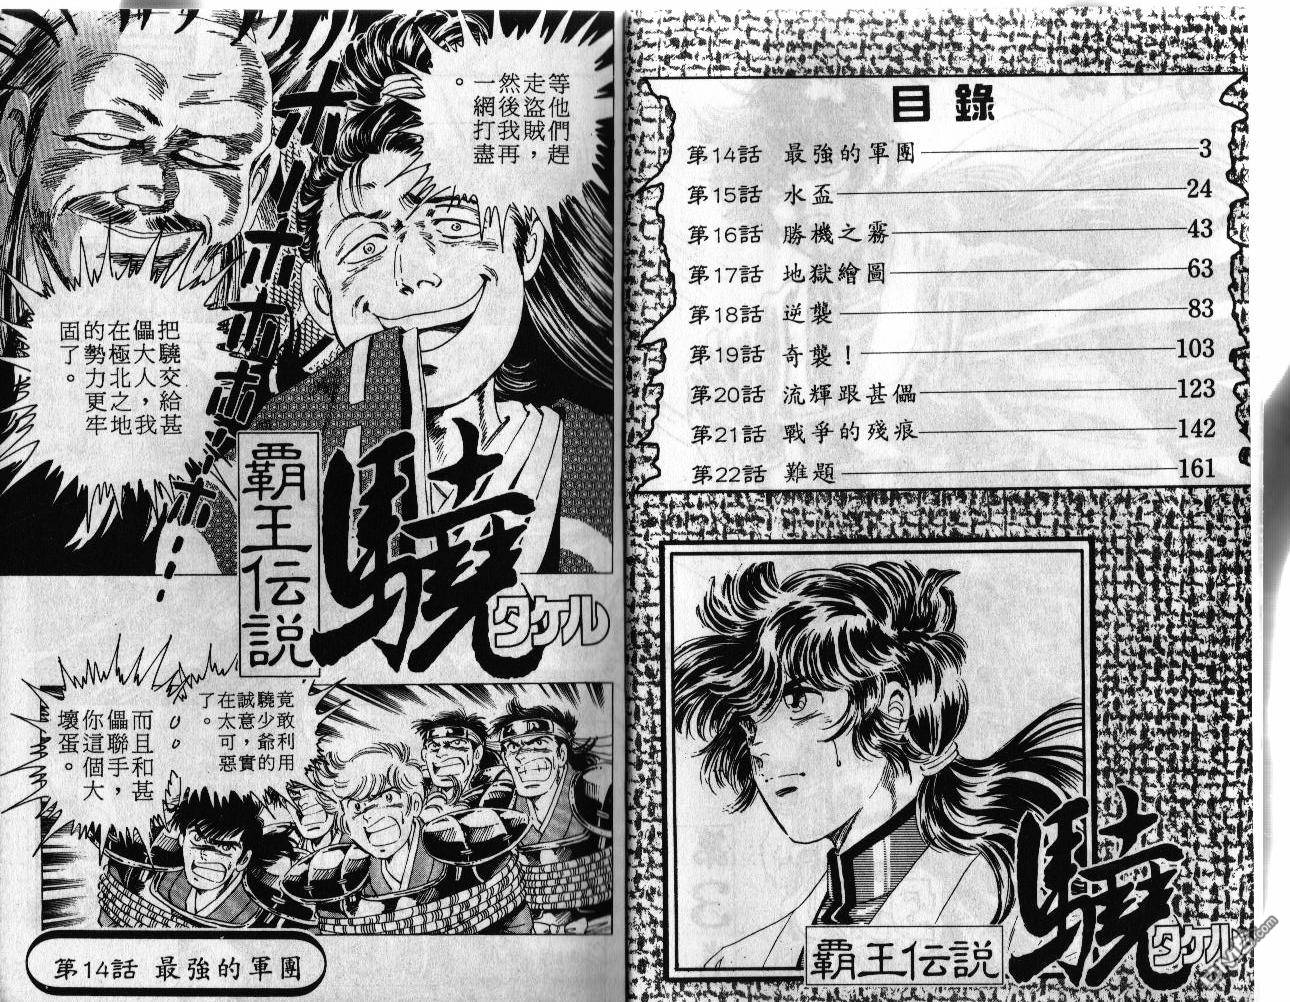 目錄
第14話 最強的軍團 3
第15話 水盃 24
第16話 勝機之霧 43
第17話 地獄繪圖 63
第18話 逆襲 83
第19話 奇襲！ 103
第20話 流輝跟甚儡 123
第21話 戰爭的殘痕 142
第22話 難題 161
覇王伝説
驍
タケル
等他們趕
走盜賊，
然後我再
一網打盡
。
ホホホホホホ‥‥ホ‥‥
把驍交給甚
儡大人，我
在極北之地
的勢力更牢
固了。
覇王伝説
驍
タケル
竟敢利用
驍少爺的
誠意，實
在太可惡
了。
而且和甚
儡聯手，
你這個大
壞蛋。
第14話 最強的軍團